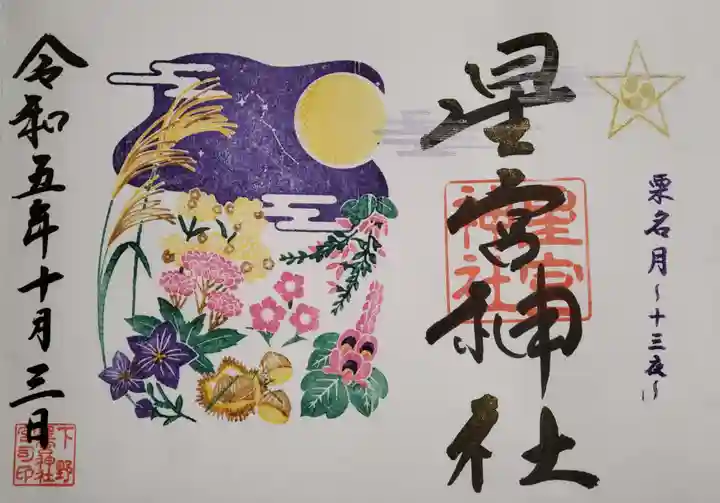 栗名月
~十三夜~
星宮神社
星宮
神社
令和五年十月三日
下野
星宮神社
宮司印